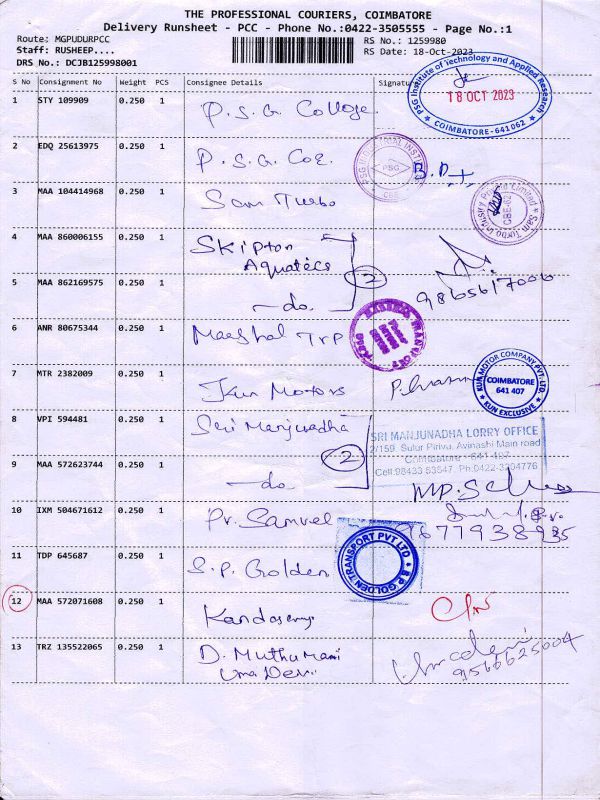 THE PROFESSIONAL COURIERS, COIMBATORE
Delivery Runsheet - PCC - Phone No.:0422-3505555 - Page No.:1
Route: MGPUDURPCC
RS No.: 1259980
Staff: RUSHEEP....
RS Date: 18-Oct-2023
DRS No.: DCJB125998001
S No Consignment No Weight PCS Consignee Details Signature
PSG Institute of Technology and Applied Research
18 OCT 2023
* COIMBATORE-641 062 *
1 STY 109909 0.250 1 P.S.G. College
2 EDQ 25613975 0.250 1 P.S.G. COE
PSG INDUSTRIAL INSTITUTE
PSG
CBE
3 MAA 104414968 0.250 1 Sam Turbo
Sam Turbo Industry Private Limited
CBE-62
4 MAA 860006155 0.250 1 Skipton
Aquatecs
2
5 MAA 862169575 0.250 1 -do.
9865617006
6 ANR 80675344 0.250 1 Maeshal Trp
TRANSPORT
7 MTR 2382009 0.250 1 Jkun Motors
KUN MOTOR COMPANY PVT. LTD.
COIMBATORE
641 407
* KUN EXCLUSIVE *
8 VPI 594481 0.250 1 Sri Manjunadha
SRI MANJUNADHA LORRY OFFICE
2/159, Sulur Pirivu, Avinashi Main road
Coimbatore - 641 407
Cell:98433 53547, Ph:0422-3204776
2
9 MAA 572623744 0.250 1 -do.
10 IXM 504671612 0.250 1 Pr. Samuel
9677938935
11 TDP 645687 0.250 1 S.P. Golden
S.P GOLDEN TRANSPORT PVT LTD
12 MAA 572071608 0.250 1 Kandasamy
13 TRZ 135522065 0.250 1 D. Muthumani
Uma Devi
9566625004